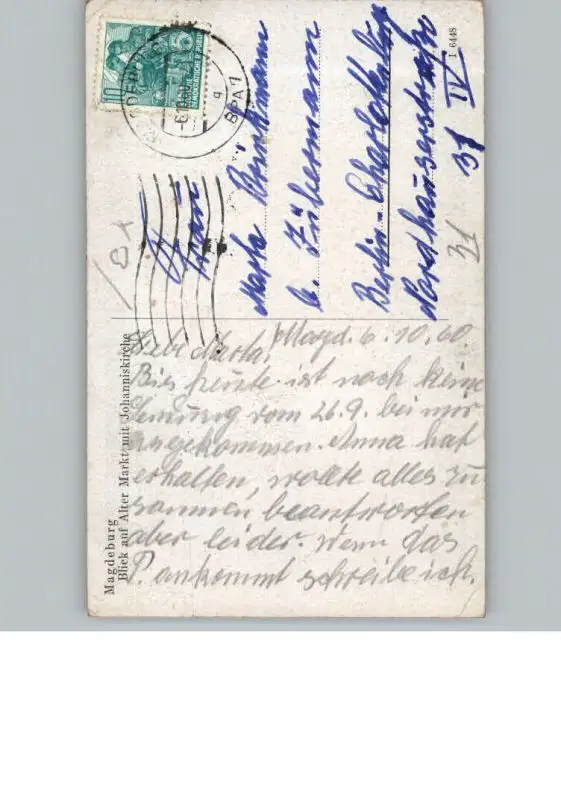 Magd. 6. 10. 60.
Liebe Marta,
Bis heute ist noch keine
vom 26.9. bei mir
angekommen. Anna hat
erhalten, wollte alles zu
sammen beantworten
aber leider. Wenn das
P. ankommt schreibe ich.
Frau
Marta
b. Fübermann
Berlin-Charlottenburg
Nordhauserstraße
31 IV
31
Magdeburg
Blick auf Alter Markt mit Johanniskirche
I 6448
10